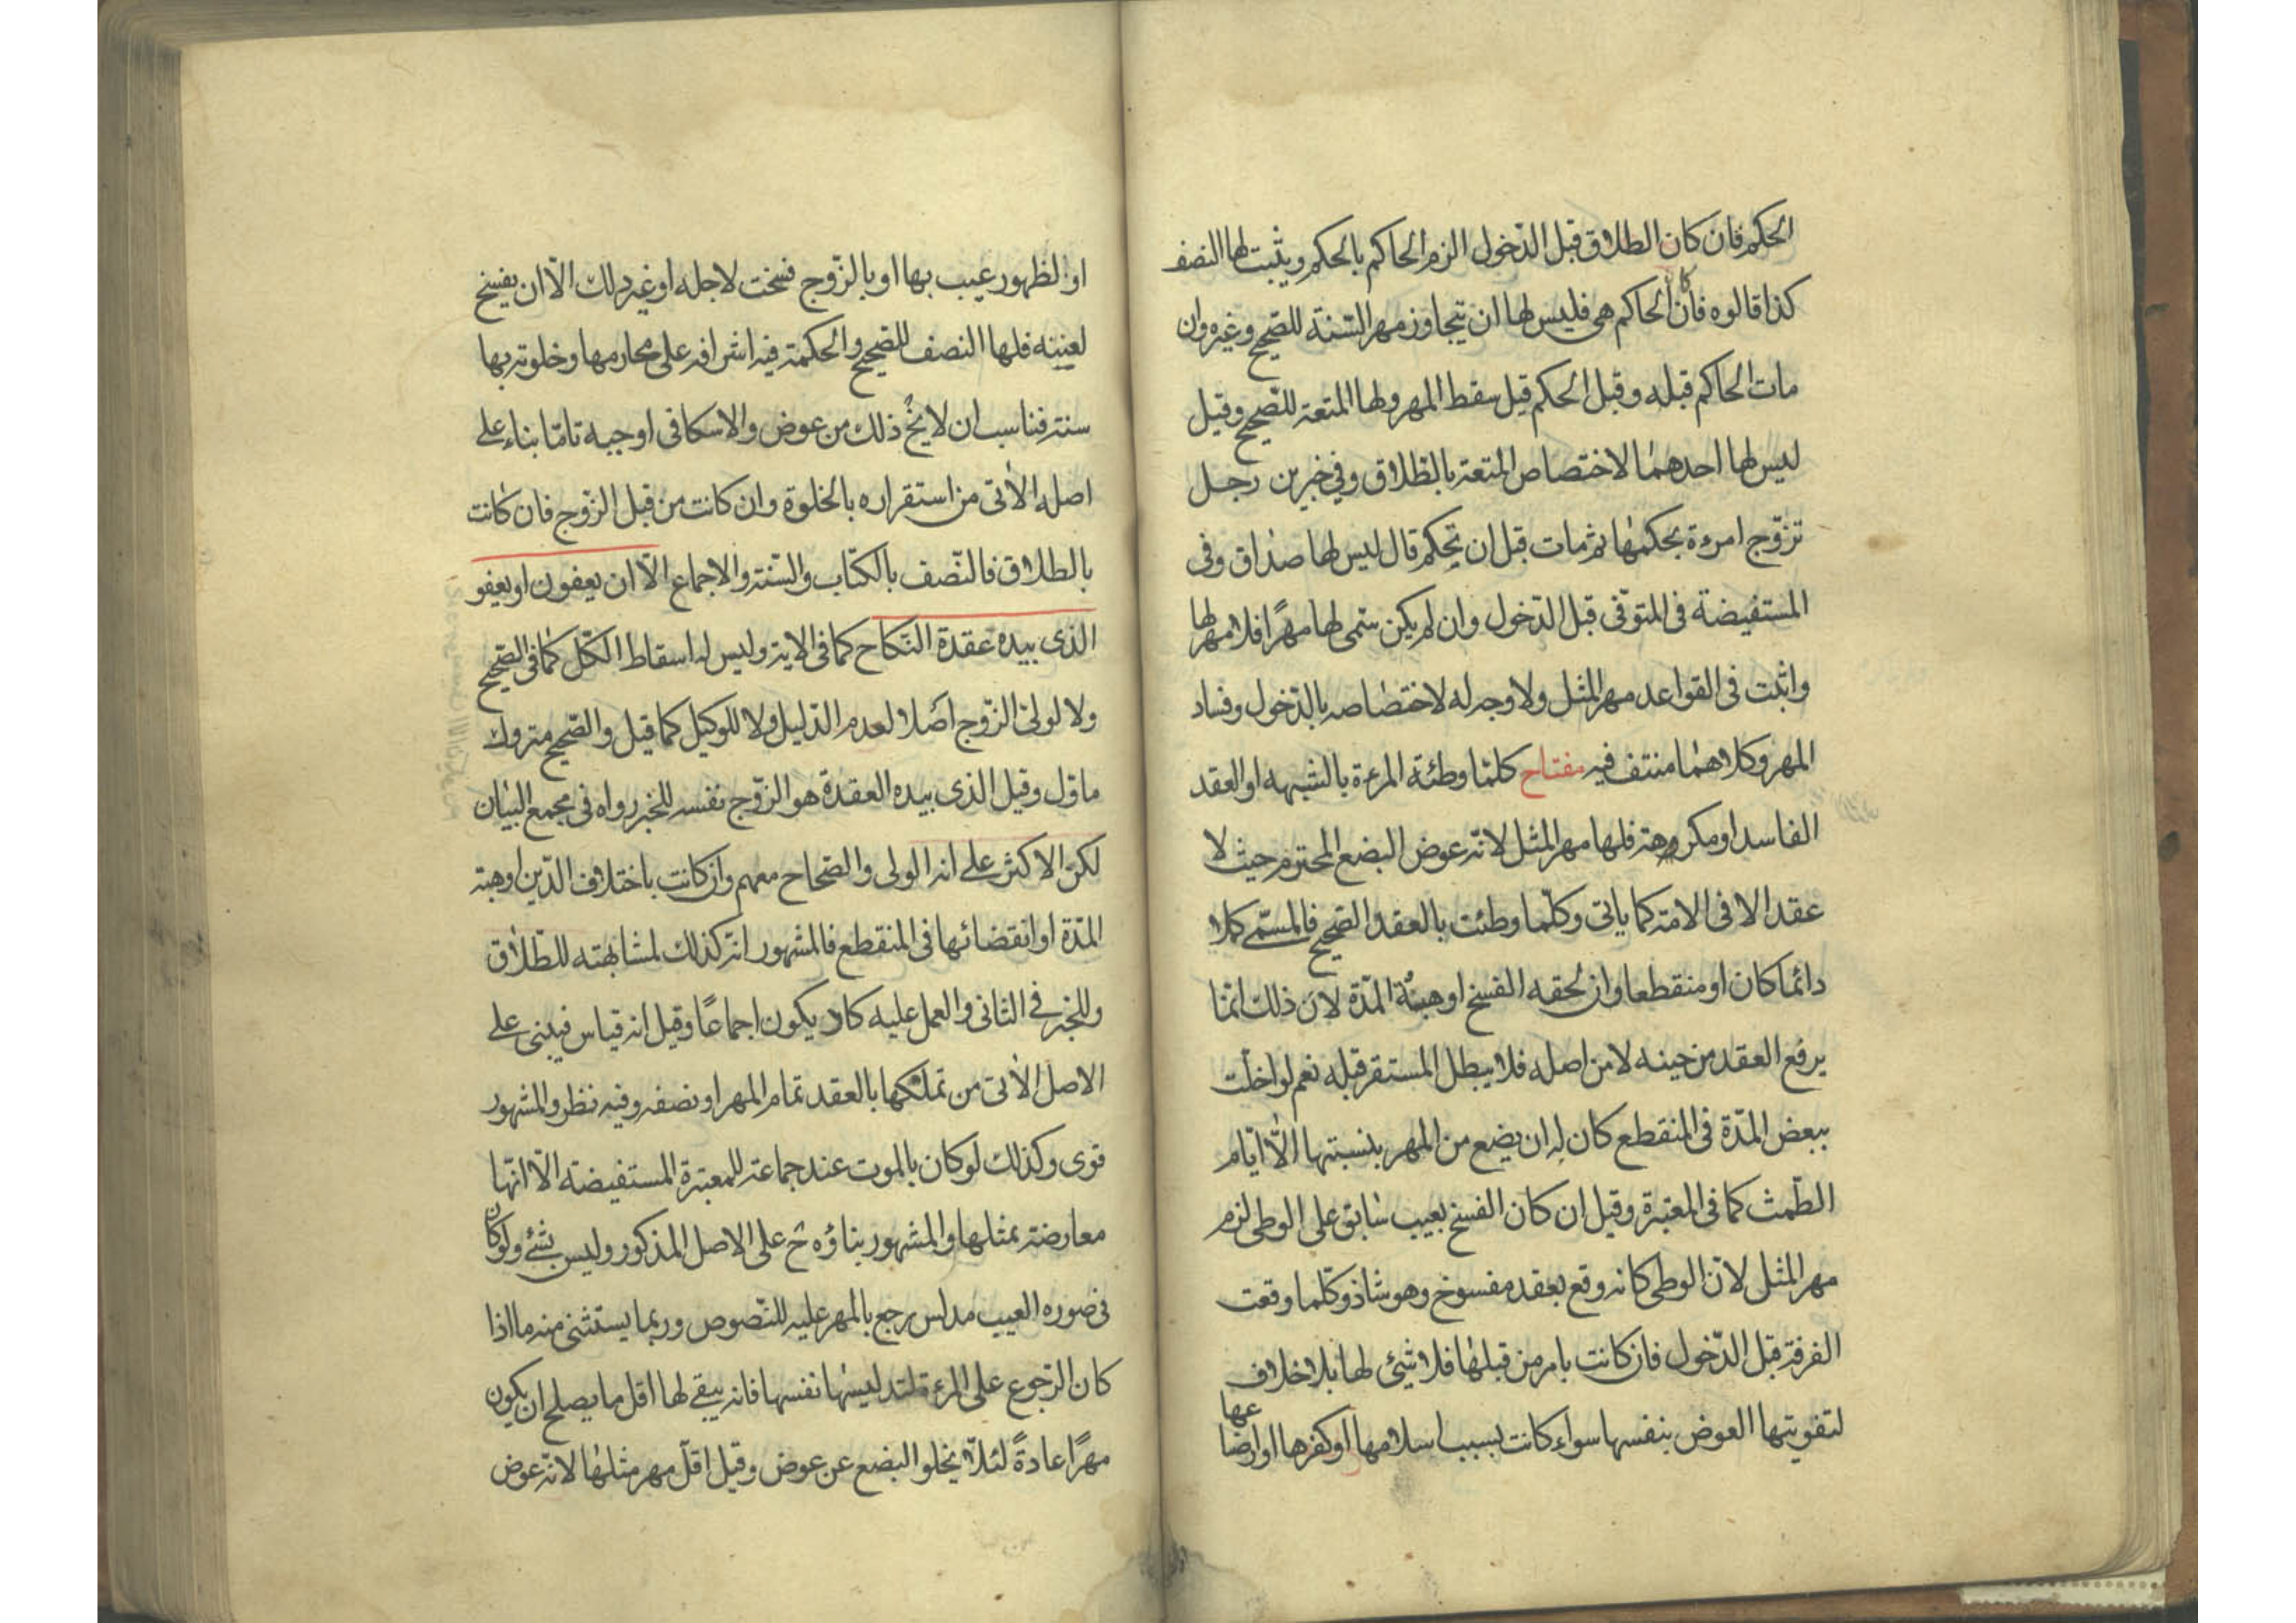 الحكم فان كان الطلاق قبل الدّخول الزم الحاكم بالحكم ويثبت لها النصف
كذا قالوه فان كان الحاكم هى فليس لها ان تتجاوز مهر السّنة للصّحيح وغيره وان
مات الحاكم قبله وقبل الحكم قيل سقط المهر ولها المتعة للصّحيح وقيل
ليس لها احدهما لاختصاص المتعة بالطلاق وفى خبرين رجل
تزوّج امرءة بحكمها ثم مات قبل ان تحكم قال ليس لها صداق وفى
المستفيضة فى المتوّفى قبل الدّخول وان لم يكن سمّى لها مهرًا فلا مهر لها
واثبت فى القواعد مهر المثل ولا وجه له لاختصاصه بالدّخول وفساد
المهر وكلاهما منتف فيه مفتاح كلمّا وطئة المرءة بالشبهه او العقد
الفاسد او مكروهة فلها مهر المثل لانّه عوض البضع المحترم حيث لا
عقد الا فى الامة كما ياتى وكلّما وطئت بالعقد الصّحيح فالمسمّى كملا
دائما كان او منقطعا وان لحقه الفسخ او هبة المدّة لانّ ذلك انمّا
يرفع العقد من حينه لا من اصله فلا يبطل المستقر قبله نعم لو اخلّت
ببعض المدّة فى المنقطع كان له ان يضع من المهر بنسبتها الاّ ايّام
الطّمث كما فى المعتبرة وقيل ان كان الفسخ بعيب سابق على الوطى لزم
مهر المثل لانّ الوطى كانه وقع بعقد مفسوخ وهو شاذ وكلّما وقعت
الفرقة قبل الدّخول فان كانت بامر من قبلها فلا شيئ لها بلا خلاف
لتفويتها العوض بنفسها سواء كانت بسبب اسلامها او كفرها او ارضاعها
او لظهور عيب بها او بالزّوج فسخت لاجله او غير ذلك الاّ ان يفسخ
لعينه فلها النصف للصّحيح والحكمة فيه اشرافه على محارمها وخلوته بها
سنة فناسب ان لا يخ ذلك من عوض والاسكافى اوجبه تامّا بناء على
اصله الاتى من استقراره بالخلوة وان كانت من قبل الزّوج فان كانت
بالطلاق فالنّصف بالكتاب والسّنة والاجماع الاّ ان يعفون او يعفو
الذى بيده عقدة النّكاح كما فى الاية وليس له اسقاط الكّل كما فى الصّحيح
ولا لولىّ الزّوج اصلا لعدم الدّليل ولا للوكيل كما قيل والصّحيح متروك
ماوّل وقيل الذى بيده العقدة هو الزّوج نفسه للخبر رواه فى مجمع البيان
لكنّ الاكثر على انه الولى والصّحاح معهم وان كانت باختلاف الدّين او هبة
المدّة او انقضائها فى المنقطع فالمشهور انّه كذلك لمشابهته للطّلاق
وللخبر فى الثانى والعمل عليه كاد يكون اجماعًا وقيل انه قياس فيبنى على
الاصل الاتى من تملّكها بالعقد تمام المهر او نصفه وفيه نظر والمشهور
قوى وكذلك لو كان بالموت عند جماعة للمعتبرة المستفيضة الاّ انّها
معارضة بمثلها والمشهور بناؤه ح على الاصل المذكور وليس بشئ ولو كان
فى صوره العيب مدلس رجع بالمهر عليه للنّصوص وربما يستثنى منه ما اذا
كان الرّجوع على المرءة لتدليسها نفسها فانه يبقى لها اقل ما يصلح ان يكون
مهرًا عادةً لئلاّ يخلو البضع عن عوض وقيل اقلّ مهر مثلها لانّه عوض